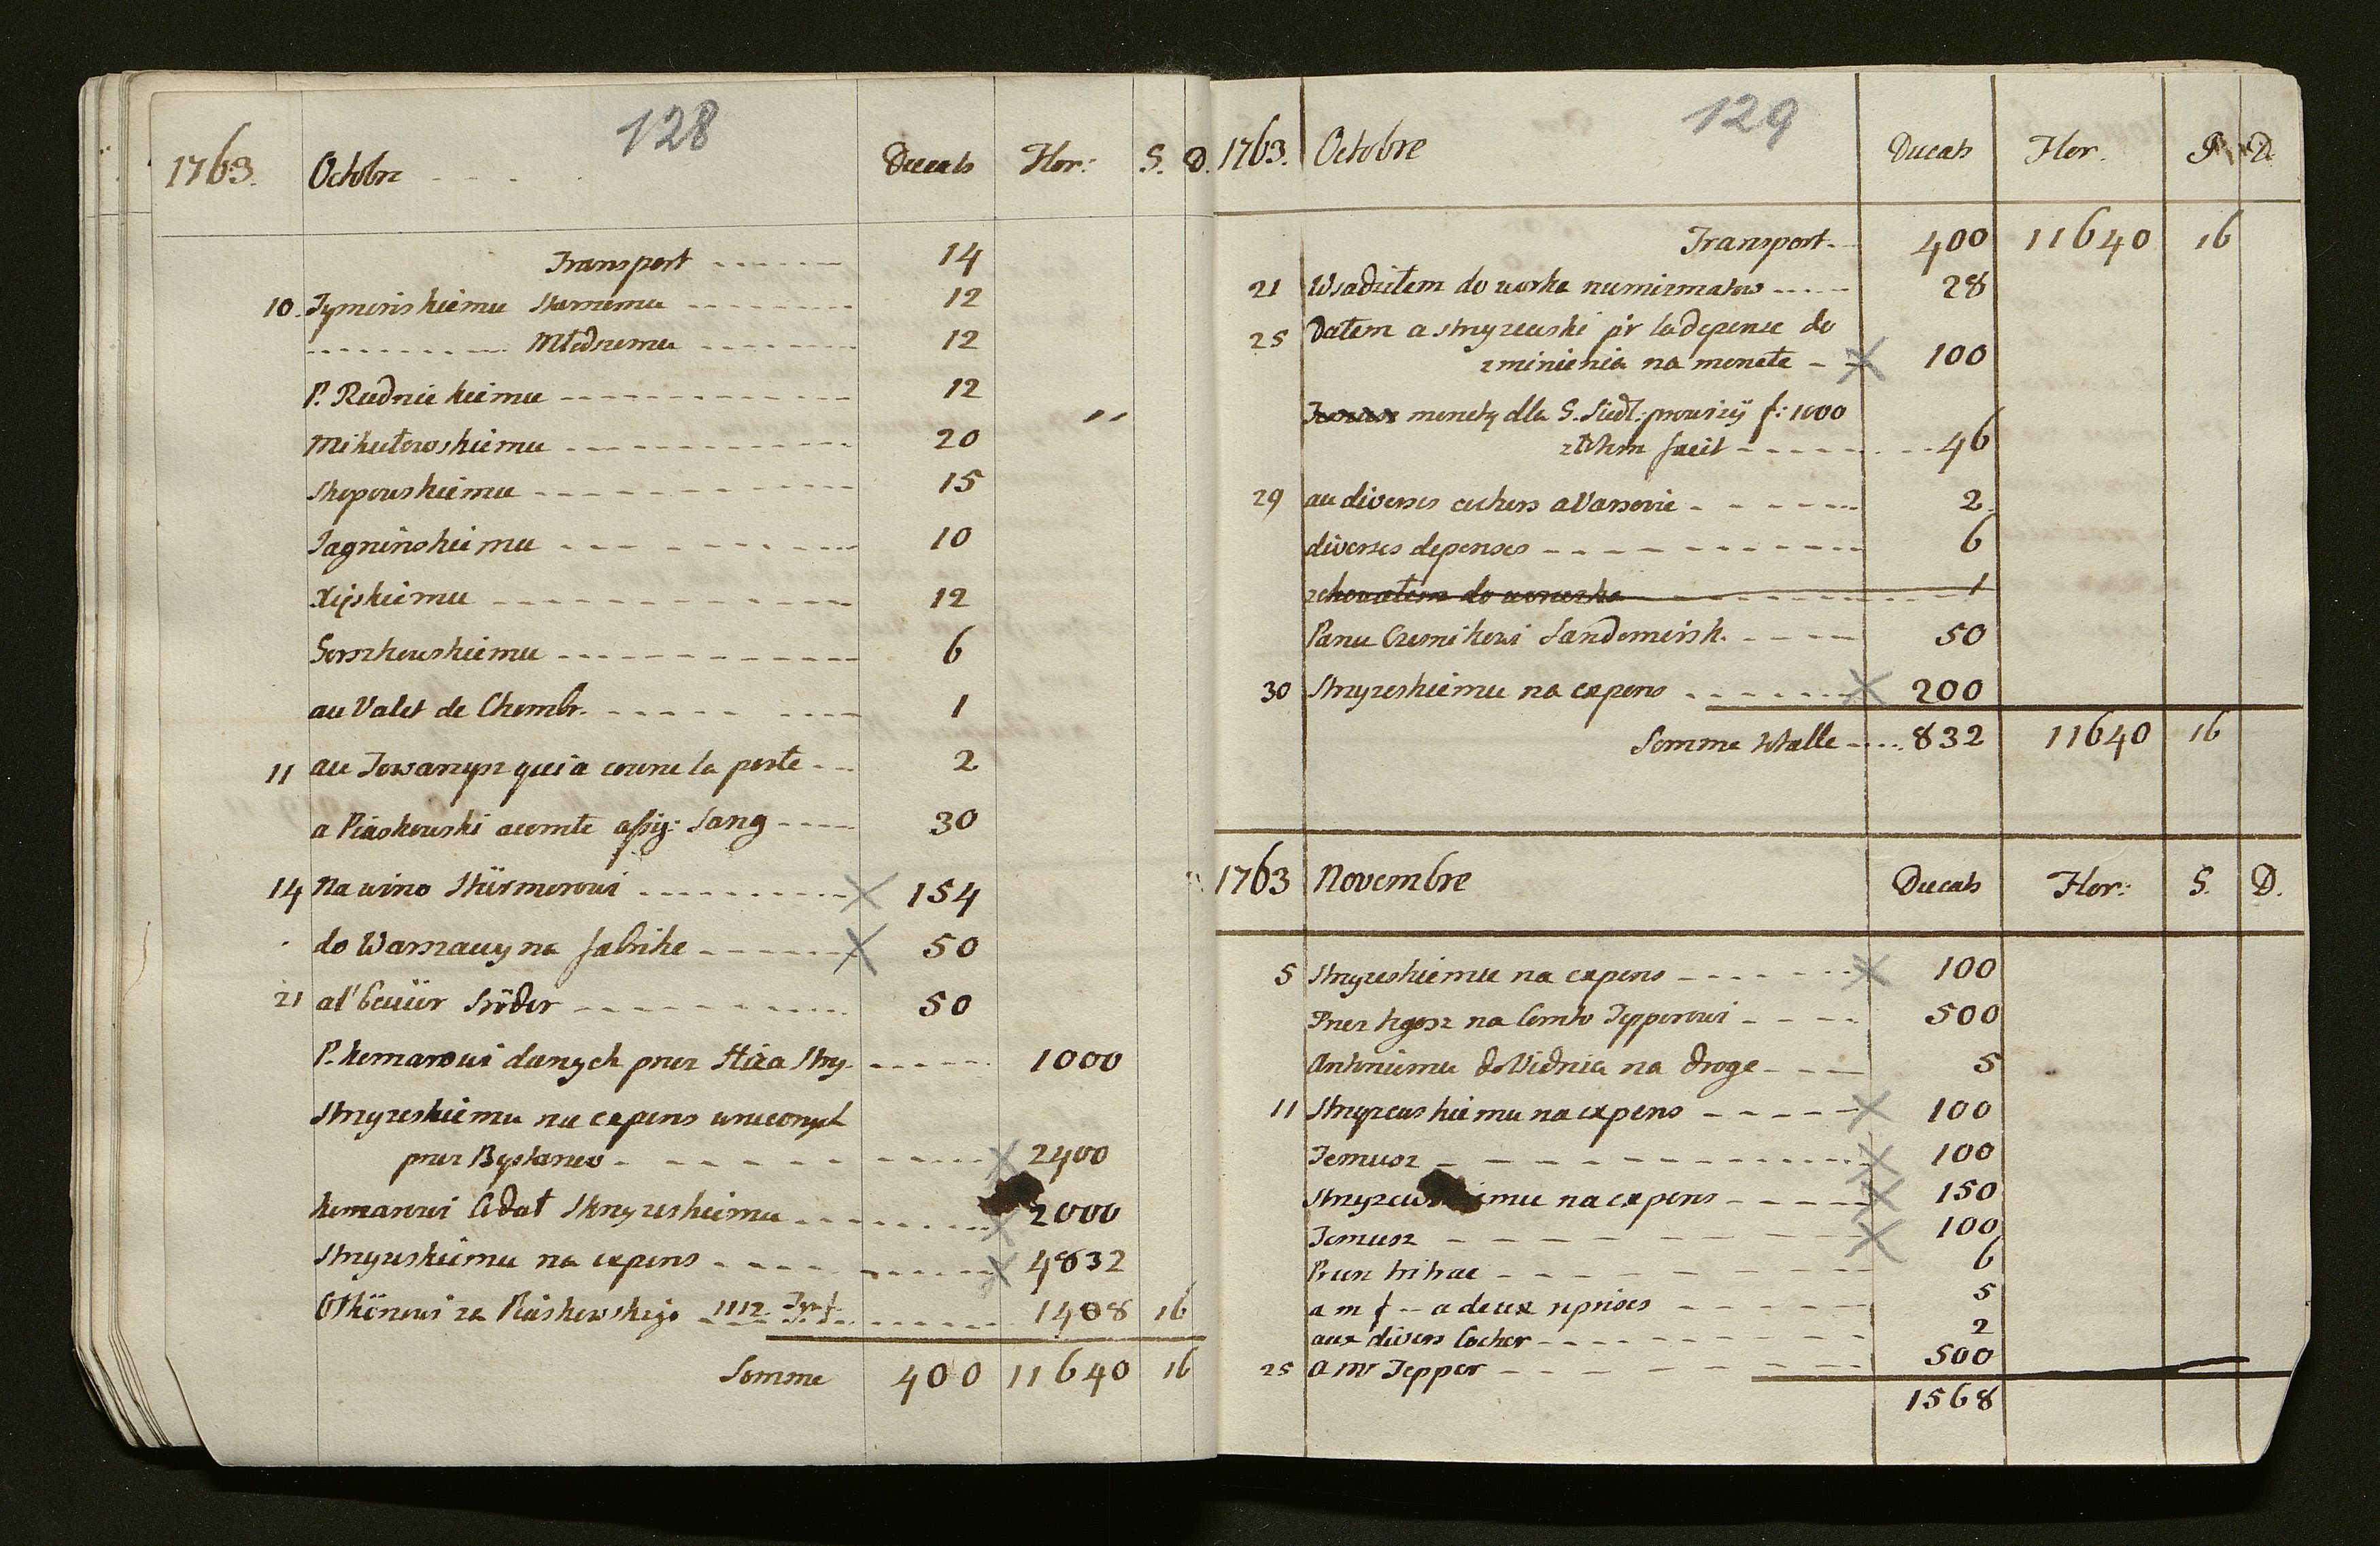 128
1763. Octobre Ducats Flor: S. D.
Transport 14
10. Tymińskiemu Starszemu 12
Młodszemu 12
P. Rudnickiemu 12
Mikułowskiemu 20
Skopowskiemu 15
Jagnińskiemu 10
Xięskiemu 12
6
au Valet de Chambr. 1
11 au Towarzysz qui a couru la poste 2
a Piaskowski aconte assig: Sang 30
14 Na wino Stürmerowi 154
do Warszawy na fabrike 50
21 50
P. komarowi danych przez Stryż. 1000
Stryżeskiemu na expens wruconych
przez Bystanów 2400
komarowi Stryżeskiemu 2000
Stryżeskiemu na expens 4832
za Piaskowskiego 1112 Tynf. 1408 16
Somme 400 11640 16
129
1763. Octobre Ducats Flor. S. D.
Transport 400 11640 16
21 Wsadziłem do worka numizmatow 28
25 Dałem a Stryżewski pr la depense do
zminienia na monete 100
monety dla S. Siedl: prowizÿ f: 1000
facit 46
29 au diverses cochers a Varsovie 2.
diverses depenses 6
zchowałem do woreczka 1
Panu Czesnikowi Sandomirsk. 50
30 Stryżeskiemu na expens 200
Somme totalle 832 11640 16
1763 Novembre Ducats Flor: S. D.
5 Stryżeskiemu na expens 100
Przez na Comto Tepperowi 500
Antoniemu do Widnia na droge 5
11 Stryżewskiemu na expens 100
Temusz 100
Stryżewskiemu na expens 150
Temusz 100
6
a m f -- a deux reprises 5
aux divers Cocher 2
25 a Mr Tepper 500
1568